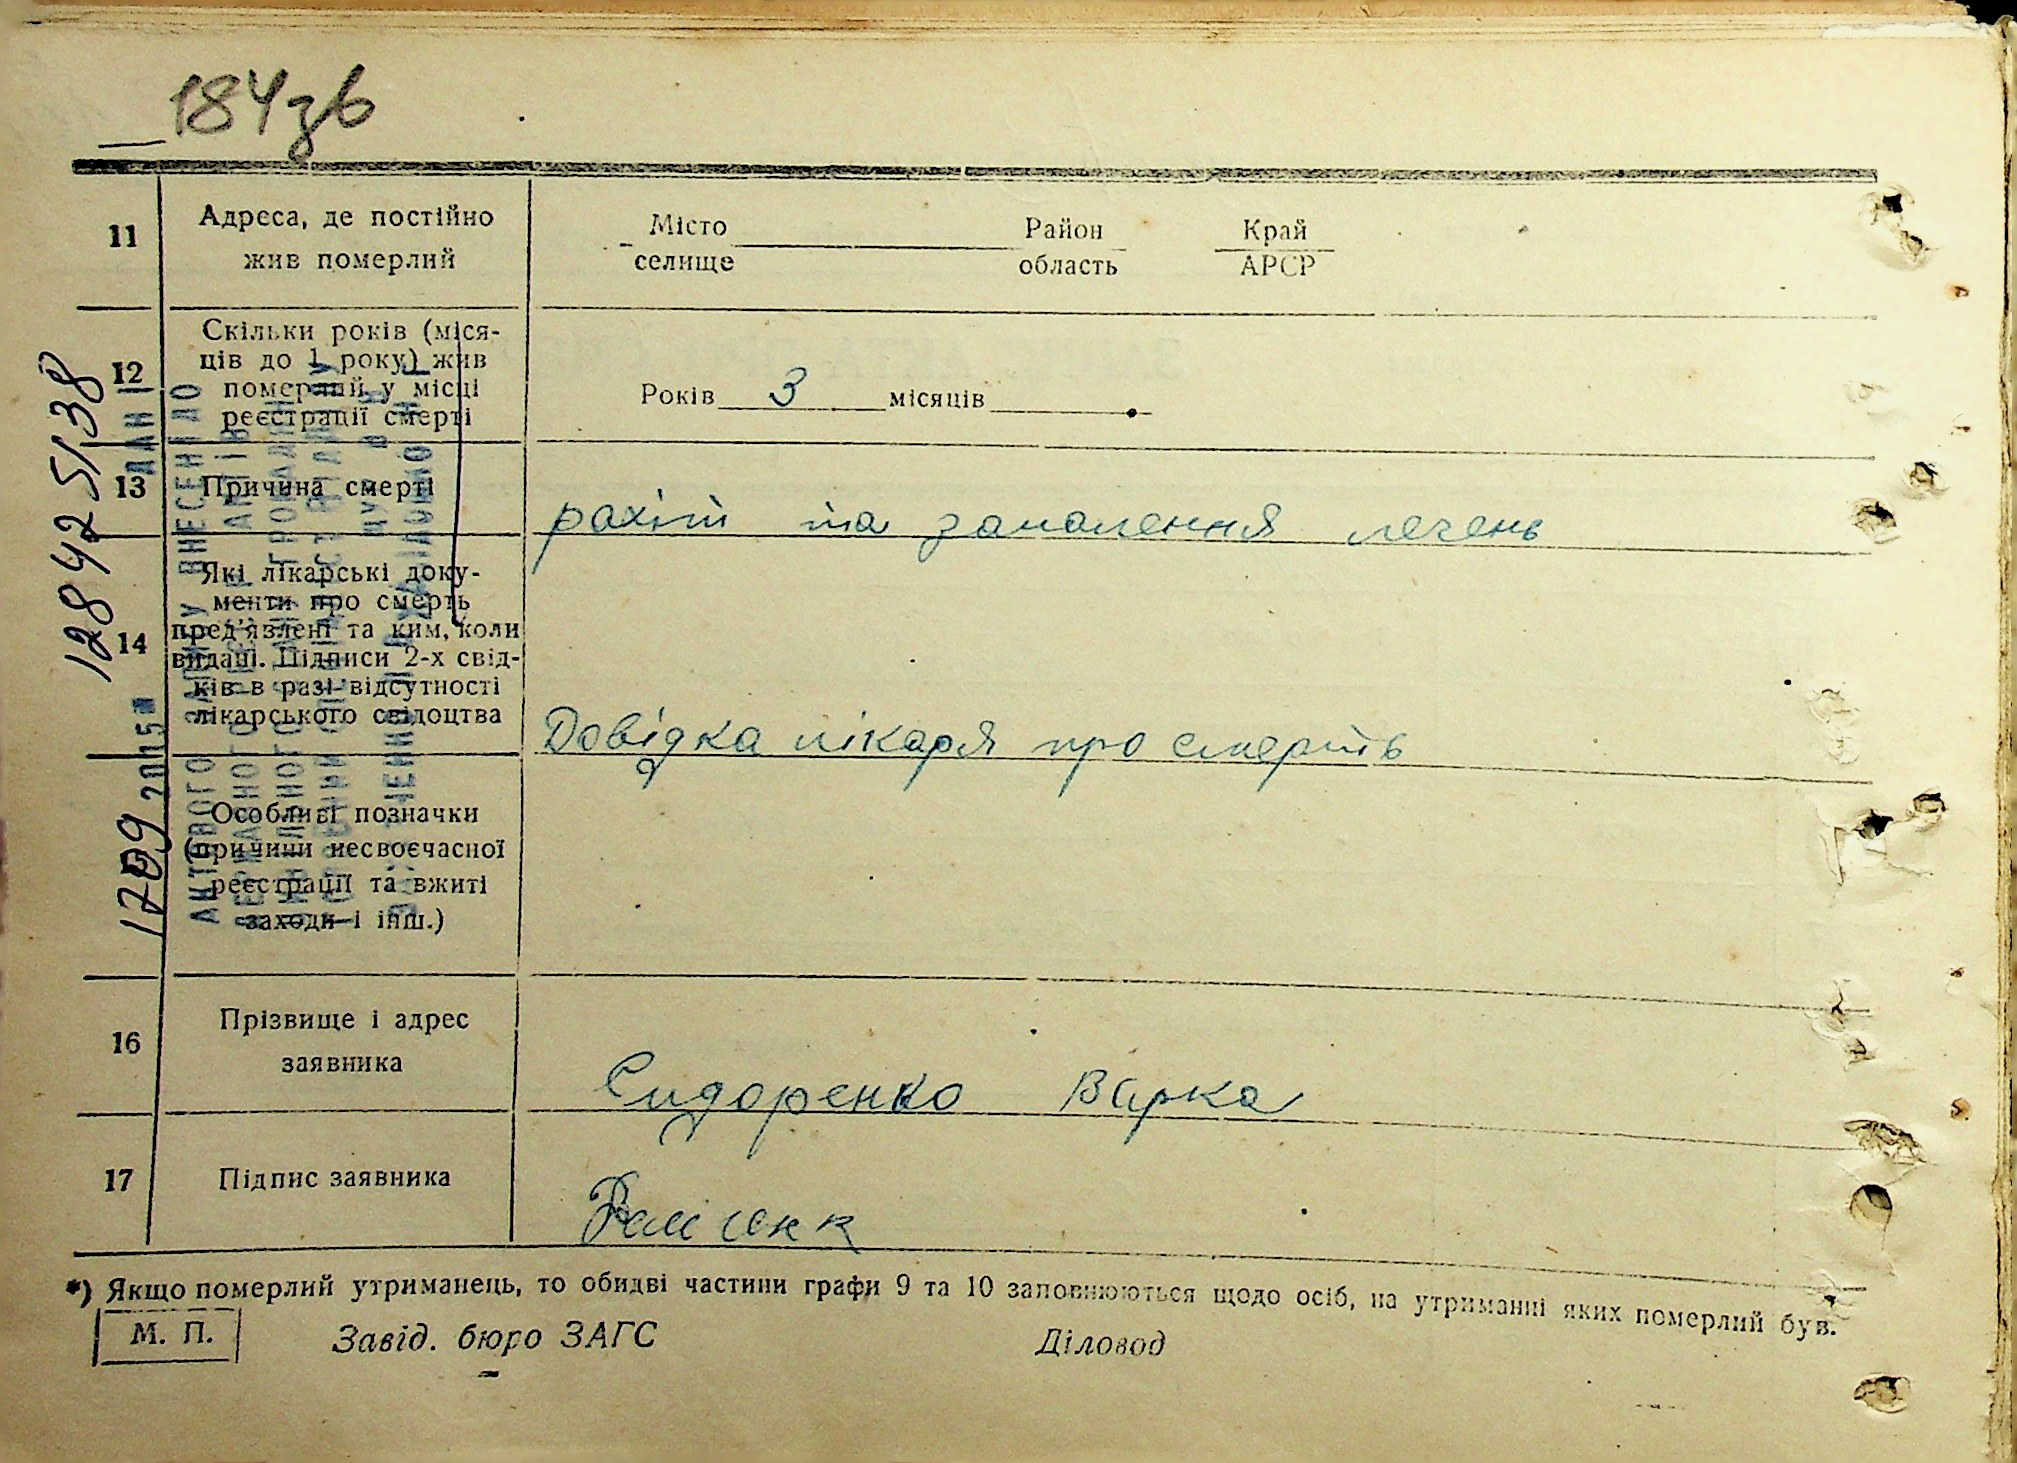 184зв
11 Адреса, де постійно жив померлий
Місто селище Район область Край АРСР
12 Скільки років (місяців до 1 року) жив померлий у місці реєстрації смерті
Років 3 місяців
13 Причина смерті
рахіт та запалення легень
14 Які лікарські документи про смерть пред'явлені та ким, коли видані. Підписи 2-х свідків в разі відсутності лікарського свідоцтва
Довідка лікаря про смерть
Особливі позначки (причини несвоєчасної реєстрації та вжиті заходи і інш.)
16 Прізвище і адрес заявника
Сидоренко Варка
17 Підпис заявника
*) Якщо померлий утриманець, то обидві частини графи 9 та 10 заповнюються щодо осіб, на утриманні яких померлий був.
М. П. Завід. бюро ЗАГС Діловод
128425138
1709 2015
ДАНІ
АКТОВОГО ЗАПИСУ ВНЕСЕНІ ДО
ДЕРЖАВНОГО